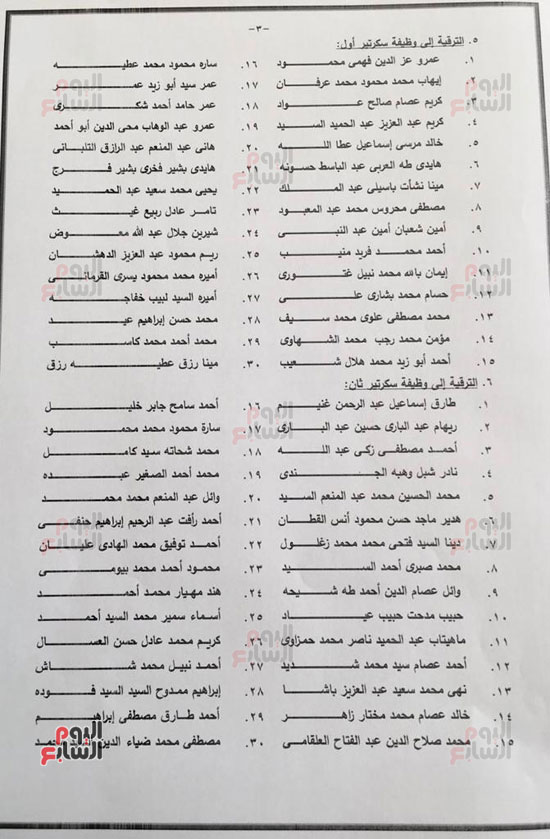 -٣-
٥. الترقية إلى وظيفة سكرتير أول:
١. عمرو عز الدين فهمى محمود
٢. إيهاب محمد محمود محمد عرفان
٣. كريم عصام صالح عواد
٤. كريم عبد العزيز عبد الحميد السيد
٥. خالد مرسى إسماعيل عطا الله
٦. هايدى طه العربى عبد الباسط حسونه
٧. مينا نشأت باسيلى عبد الملك
٨. مصطفى محروس محمد عبد المعبود
٩. أمين شعبان أمين عبد النبى
١٠. أحمد محمد فريد منيب
١١. إيمان بالله محمد نبيل غتورى
١٢. حسام محمد بشارى على
١٣. محمد مصطفى علوى محمد سيف
١٤. مؤمن محمد رجب محمد الشهاوى
١٥. أحمد أبو زيد محمد هلال شعيب
١٦. ساره محمود محمد عطيه
١٧. عمر سيد أبو زيد عمر
١٨. عمر حامد أحمد شكرى
١٩. عمرو عبد الوهاب محى الدين أبو أحمد
٢٠. هانى عبد المنعم عبد الرازق التلبانى
٢١. هايدى بشير فخرى بشير فرج
٢٢. يحيى محمد سعيد عبد الحميد
٢٣. تامر عادل ربيع غيث
٢٤. شيرين جلال عبد الله معوض
٢٥. ريم محمود عبد العزيز الدهشان
٢٦. أميره محمد محمود يسرى القرمانى
٢٧. أميره السيد لبيب خفاجه
٢٨. محمد حسن إبراهيم عيد
٢٩. محمد أحمد محمد كاسب
٣٠. مينا رزق عطيه رزق
٦. الترقية إلى وظيفة سكرتير ثان:
١. طارق إسماعيل عبد الرحمن غنيم
٢. ريهام عبد البارى حسين عبد البارى
٣. أحمد مصطفى زكى عبد الله
٤. نادر شبل وهبه الجندى
٥. محمد الحسين محمد عبد المنعم السيد
٦. هدير ماجد حسن محمود أنس القطان
٧. دينا السيد فتحى محمد محمد زغلول
٨. محمد صبرى أحمد السيد
٩. وائل عصام الدين أحمد طه شيحه
١٠. حبيب مدحت حبيب عياد
١١. ماهيتاب عبد الحميد ناصر محمد حمزاوى
١٢. أحمد عصام سيد محمد شديد
١٣. نهى محمد سعيد عبد العزيز باشا
١٤. خالد عصام محمد مختار زاهر
١٥. محمد صلاح الدين عبد الفتاح العلقامى
١٦. أحمد سامح جابر خليل
١٧. سارة محمود محمد محمود
١٨. محمد شحاته سيد كامل
١٩. محمد أحمد الصغير عبده
٢٠. وائل عبد المنعم محمد محمد
٢١. أحمد رأفت عبد الرحيم إبراهيم حنفى
٢٢. أحمد توفيق محمد الهادى عليان
٢٣. محمود أحمد محمد بيومى
٢٤. هند مهيار محمد أحمد
٢٥. أسماء سمير محمد السيد أحمد
٢٦. كريم محمد عادل حسن العسال
٢٧. أحمد نبيل محمد شاش
٢٨. إبراهيم ممدوح السيد السيد فوده
٢٩. أحمد طارق مصطفى إبراهيم
٣٠. مصطفى محمد ضياء الدين
اليوم السابع